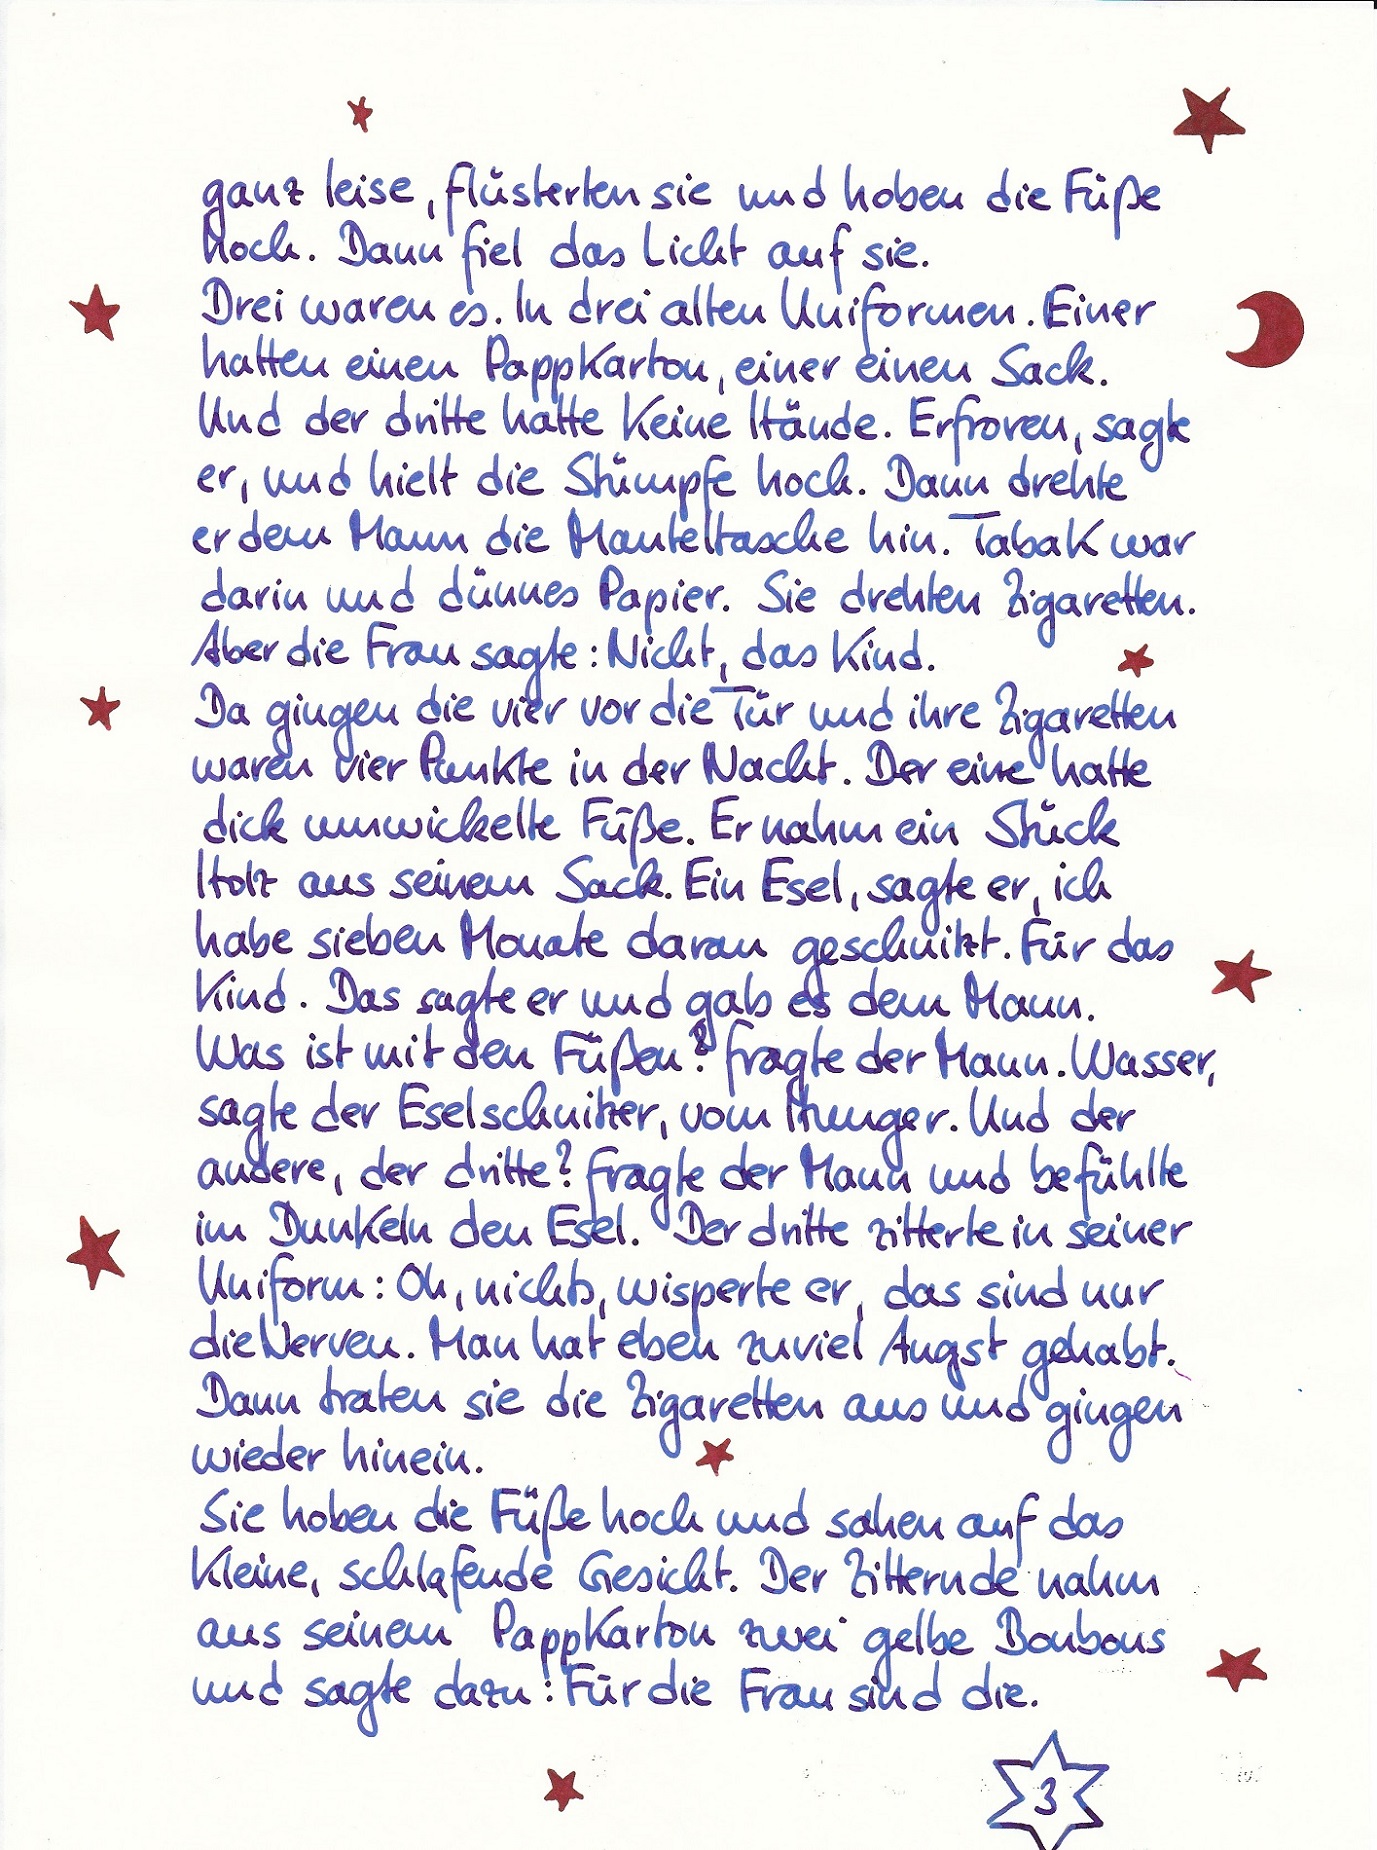 ganz leise, flüsterten sie und hoben die Füße
hoch. Dann fiel das Licht auf sie.
Drei waren es. In drei alten Uniformen. Einer
hatten einen Pappkarton, einer einen Sack.
Und der dritte hatte keine Hände. Erfroren, sagte
er, und hielt die Stümpfe hoch. Dann drehte
er dem Mann die Manteltasche hin. Tabak war
darin und dünnes Papier. Sie drehten Zigaretten.
Aber die Frau sagte: Nicht, das Kind.
Da gingen die vier vor die Tür und ihre Zigaretten
waren vier Punkte in der Nacht. Der eine hatte
dick umwickelte Füße. Er nahm ein Stück
Holz aus seinem Sack. Ein Esel, sagte er, ich
habe sieben Monate daran geschnitzt. Für das
Kind. Das sagte er und gab es dem Mann.
Was ist mit den Füßen? fragte der Mann. Wasser,
sagte der Eselschnitzer, vom Hunger. Und der
andere, der dritte? fragte der Mann und befühlte
im Dunkeln den Esel. Der dritte zitterte in seiner
Uniform: Oh, nichts, wisperte er, das sind nur
die Nerven. Man hat eben zuviel Angst gehabt.
Dann traten sie die Zigaretten aus und gingen
wieder hinein.
Sie hoben die Füße hoch und sahen auf das
kleine, schlafende Gesicht. Der Zitternde nahm
aus seinem Pappkarton zwei gelbe Bonbons
und sagte dazu: Für die Frau sind die.
3